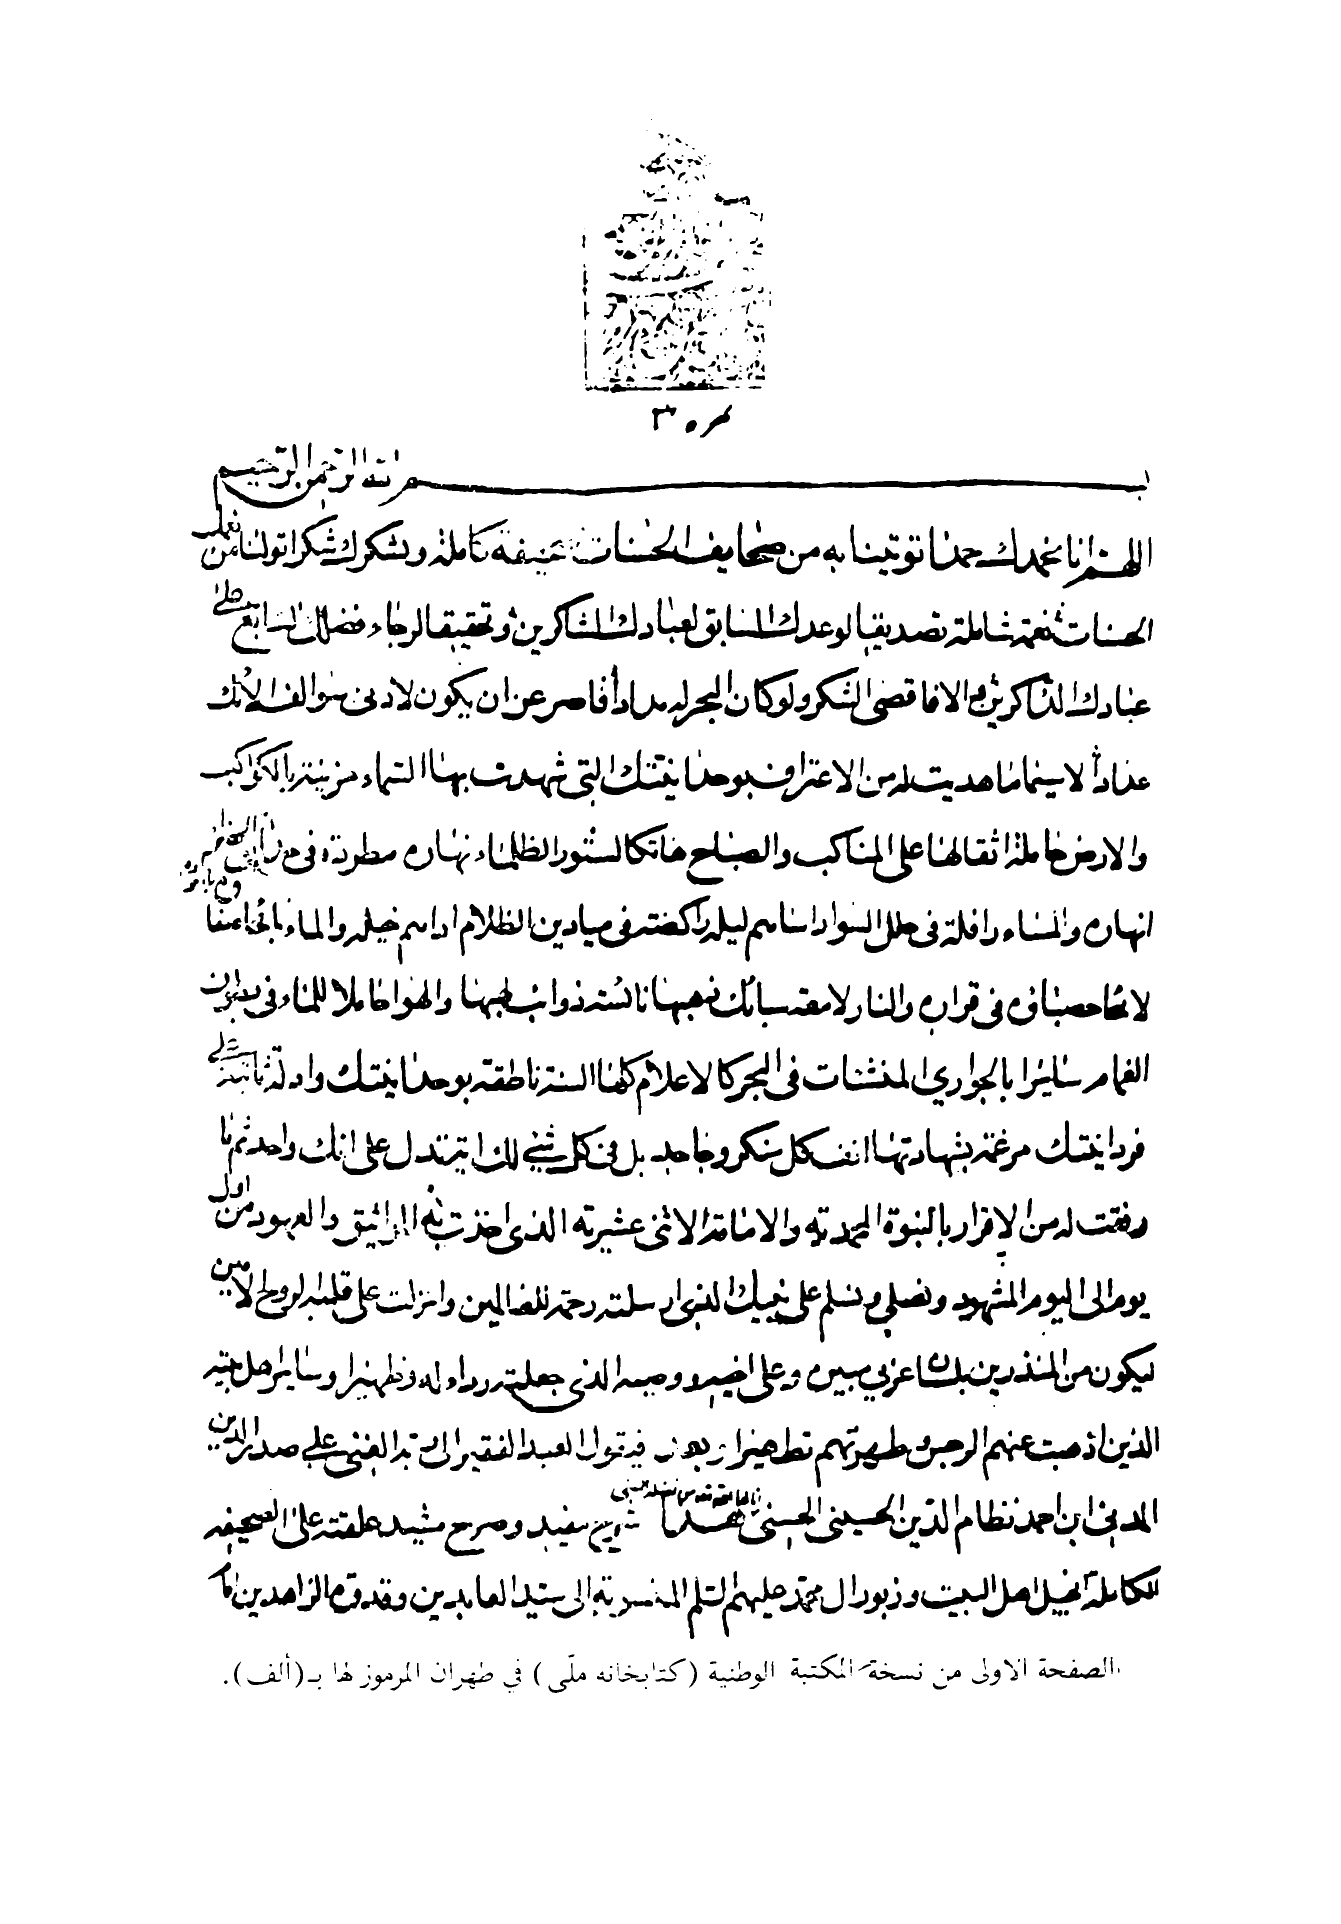 نمره ٣
بسم الله الرحمن الرحيم
اللهم انا نحمدك حمدا توتينا به من صحايف الحسنات صحيفة كاملة ونشكرك شكرا تولنا من نعلى
الحسنات نعمة شاملة تصديقا لوعدك السابق لعبادك الشاكرين وتحقيقا لرجاء فضلك السابغ على
عبادك الذاكرين والا فما قضى الشكر ولو كان البحر له مدادا قاصر عن ان يكون لادنى سوالف الائك
عدادا لا سيما ما هديت له من الاعتراف بوحدانيتك التي شهدت بها السماء مزينة بالكواكب
والارض حاملة اثقالها على المناكب والصباح هاتكا لستور الظلماء نهاره مطردة في
انهاره والمساء رافلة في حلل السواد اساسم ليله راكضة في ميادين الظلام اداهم خيله والماء
في قراره والنار لامعة سبائك ذهبها نائسة ذوائب لهبها والهوا حاملا للماء في بطون
الغمام سايرا بالجواري المنشئات في البحر كالاعلام كلها السنة ناطقة بوحدانيتك وادلة ثابتة على
فردانيتك مرغمة بشهادتها انف كل منكر وجاحد بل في كل شئ لك اية تدل على انك واحد ثم ما
وفقت له من الاقرار بالنبوة المحمدية والامامة الاثنى عشرية الذي اخذت به المواثيق والعهود من اول
يوم الى اليوم المشهود ونصلي ونسلم على نبيك الذي ارسلته رحمة للعالمين وانزلت على قلبه الروح الامين
ليكون من المنذرين بلسان عربي مبين وعلى اخيه ووصيه الذي جعلته رداء له وظهيرا وساير اهل بيته
الذين اذهبت عنهم الرجس وطهرتهم تطهيرا وبعد فيقول العبد الفقير الى ربه الغنى علي صدر الدين
المدني ابن احمد نظام الدين الحسيني الحسني هذا شرح مفيد وصرح مشيد علقته على الصحيفه
الكاملة انجيل اهل البيت وزبور ال محمد عليهم السلم المنسوبة الى سيد العابدين وقدوة الزاهدين امام
الصفحة الاولى من نسخة المكتبة الوطنية (كتابخانه ملّى) في طهران المرموز لها بـ (ألف).